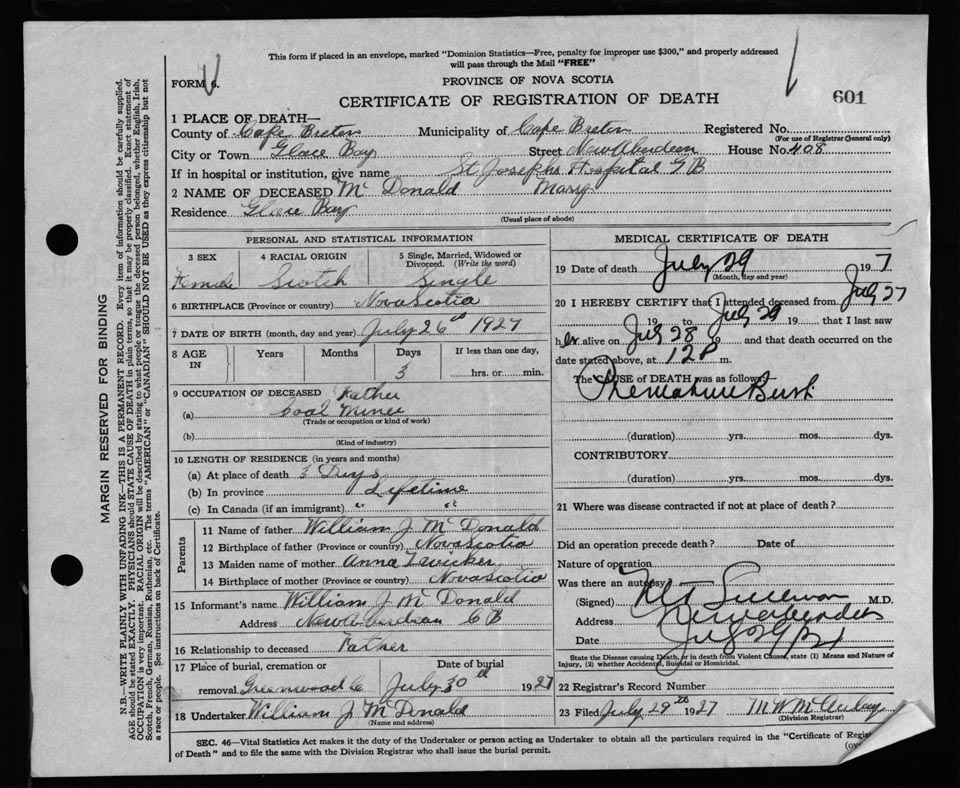 This form if placed in an envelope, marked "Dominion Statistics—Free, penalty for improper use $300," and properly addressed
will pass through the Mail "FREE"
FORM 6.
PROVINCE OF NOVA SCOTIA
CERTIFICATE OF REGISTRATION OF DEATH
601
1 PLACE OF DEATH—
County of Cape Breton Municipality of Cape Breton Registered No.
(For use of Registrar General only)
City or Town Glace Bay Street New Aberdeen House No. 408
If in hospital or institution, give name St Josephs Hospital G B
2 NAME OF DECEASED McDonald Mary
Residence Glace Bay
(Usual place of abode)
PERSONAL AND STATISTICAL INFORMATION
3 SEX 4 RACIAL ORIGIN 5 Single, Married, Widowed or Divorced. (Write the word)
Female Scotch Single
6 BIRTHPLACE (Province or country) Nova Scotia
7 DATE OF BIRTH (month, day and year) July 26th 1927
8 AGE IN Years Months Days If less than one day,
3 hrs. or min.
9 OCCUPATION OF DECEASED Father
(a) Coal Miner
(Trade or occupation or kind of work)
(b)
(Kind of industry)
10 LENGTH OF RESIDENCE (in years and months)
(a) At place of death 3 Days
(b) In province Lifetime
(c) In Canada (if an immigrant) " "
Parents
11 Name of father William J McDonald
12 Birthplace of father (Province or country) Nova Scotia
13 Maiden name of mother Anna
14 Birthplace of mother (Province or country) Nova Scotia
15 Informant's name William J McDonald
Address
16 Relationship to deceased Father
17 Place of burial, cremation or Date of burial
removal. Greenwood July 30th 1927
18 Undertaker William J McDonald
(Name and address)
MEDICAL CERTIFICATE OF DEATH
19 Date of death July 29 1927
(Month, day and year)
20 I HEREBY CERTIFY that I attended deceased from July 27
19 to July 29 19 that I last saw
her alive on July 28 and that death occurred on the
date stated above, at 12 P m.
The CAUSE OF DEATH was as follows:—
Premature Birth
(duration) yrs. mos. dys.
CONTRIBUTORY
(duration) yrs. mos. dys.
21 Where was disease contracted if not at place of death?
Did an operation precede death? Date of
Nature of operation
Was there an autopsy
(Signed) Sullivan M.D.
Address
Date July 29/27
State the Disease causing Death, or in death from Violent Causes, state (1) Means and Nature of
Injury, (2) whether Accidental, Suicidal or Homicidal.
22 Registrar's Record Number
23 Filed July 29th 1927 M W
(Division Registrar)
SEC. 46—Vital Statistics Act makes it the duty of the Undertaker or person acting as Undertaker to obtain all the particulars required in the "Certificate of
of Death" and to file the same with the Division Registrar who shall issue the burial permit.
MARGIN RESERVED FOR BINDING
N.B.—WRITE PLAINLY WITH UNFADING INK—THIS IS A PERMANENT RECORD. Every item of information should be carefully supplied.
AGE should be stated EXACTLY. PHYSICIANS should STATE CAUSE OF DEATH in plain terms, so that it may be properly classified. Exact statement of
OCCUPATION is very important. RACIAL ORIGIN will be described by stating to what people or tongue the deceased person belonged, whether English, Irish,
Scotch, French, German, Russian, Ruthenian, etc. The terms "AMERICAN" or "CANADIAN" SHOULD NOT BE USED as they express citizenship but not
a race or people. See instructions on back of Certificate.